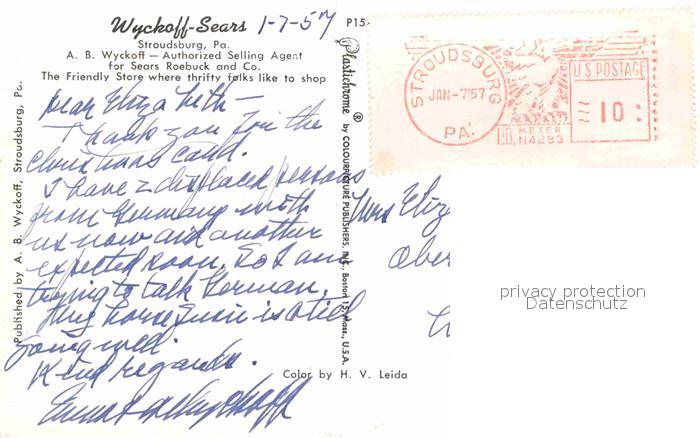 Wyckoff-Sears 1-7-57
Stroudsburg, Pa.
A. B. Wyckoff — Authorized Selling Agent
for Sears Roebuck and Co.
The Friendly Store where thrifty folks like to shop
Dear Elizabeth —
Thank you for the
Christmas card.
I have 2 displaced persons
from Germany with
us now and another
expected soon. So I am
trying to talk German.
My horse Susie is still
going well.
Kind regards.
Wyckoff
Published by A. B. Wyckoff, Stroudsburg, Pa.
P15
Plastichrome ® by COLOURPICTURE PUBLISHERS, INC., Boston 15, Mass., U.S.A.
Color by H. V. Leida
STROUDSBURG
JAN-7'57
PA.
U.S. POSTAGE
10
P.B. METER
Mrs Eliz
Ober
privacy protection
Datenschutz